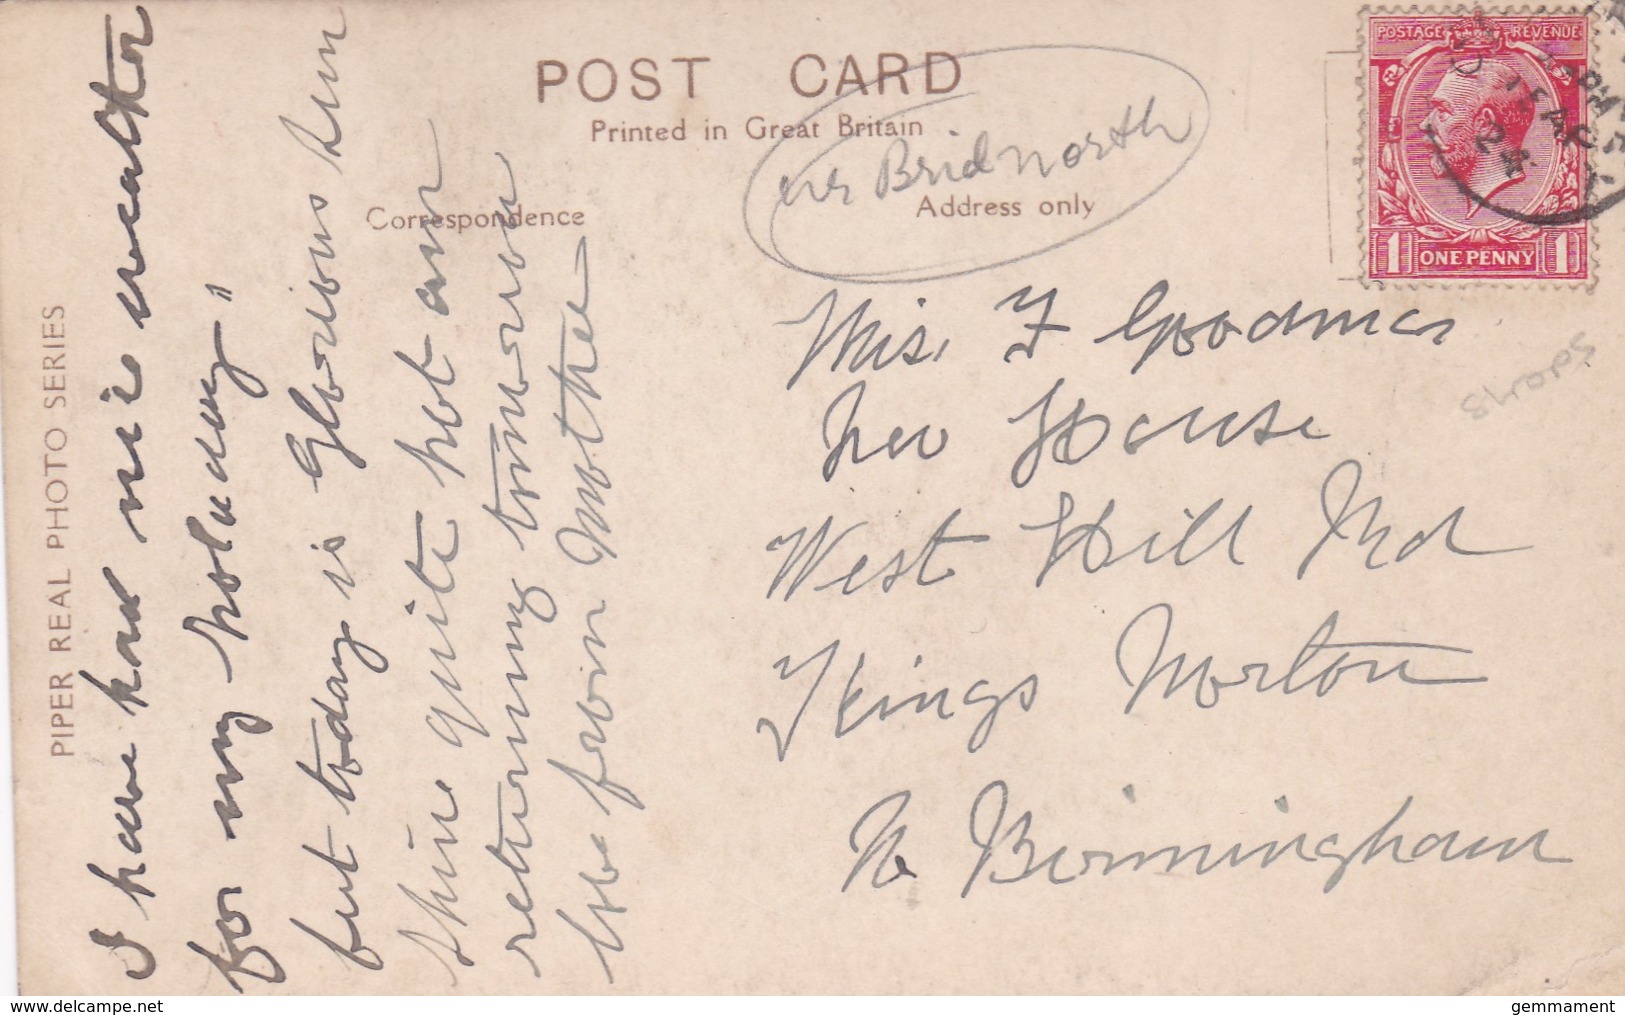 POST CARD
Printed in Great Britain
nr Bridnorth
Correspondence
Address only
POSTAGE REVENUE
1 ONE PENNY 1
PIPER REAL PHOTO SERIES
I have had nice weather
for my holuday"
but today is Glorious Sun
Shine quite hot am
returning tomorow
love from Mother
Miss F Goodman
House
West Hill Rd
Kings Norton
Nr Birmingham
Shops
www.delcampe.net
gemmament